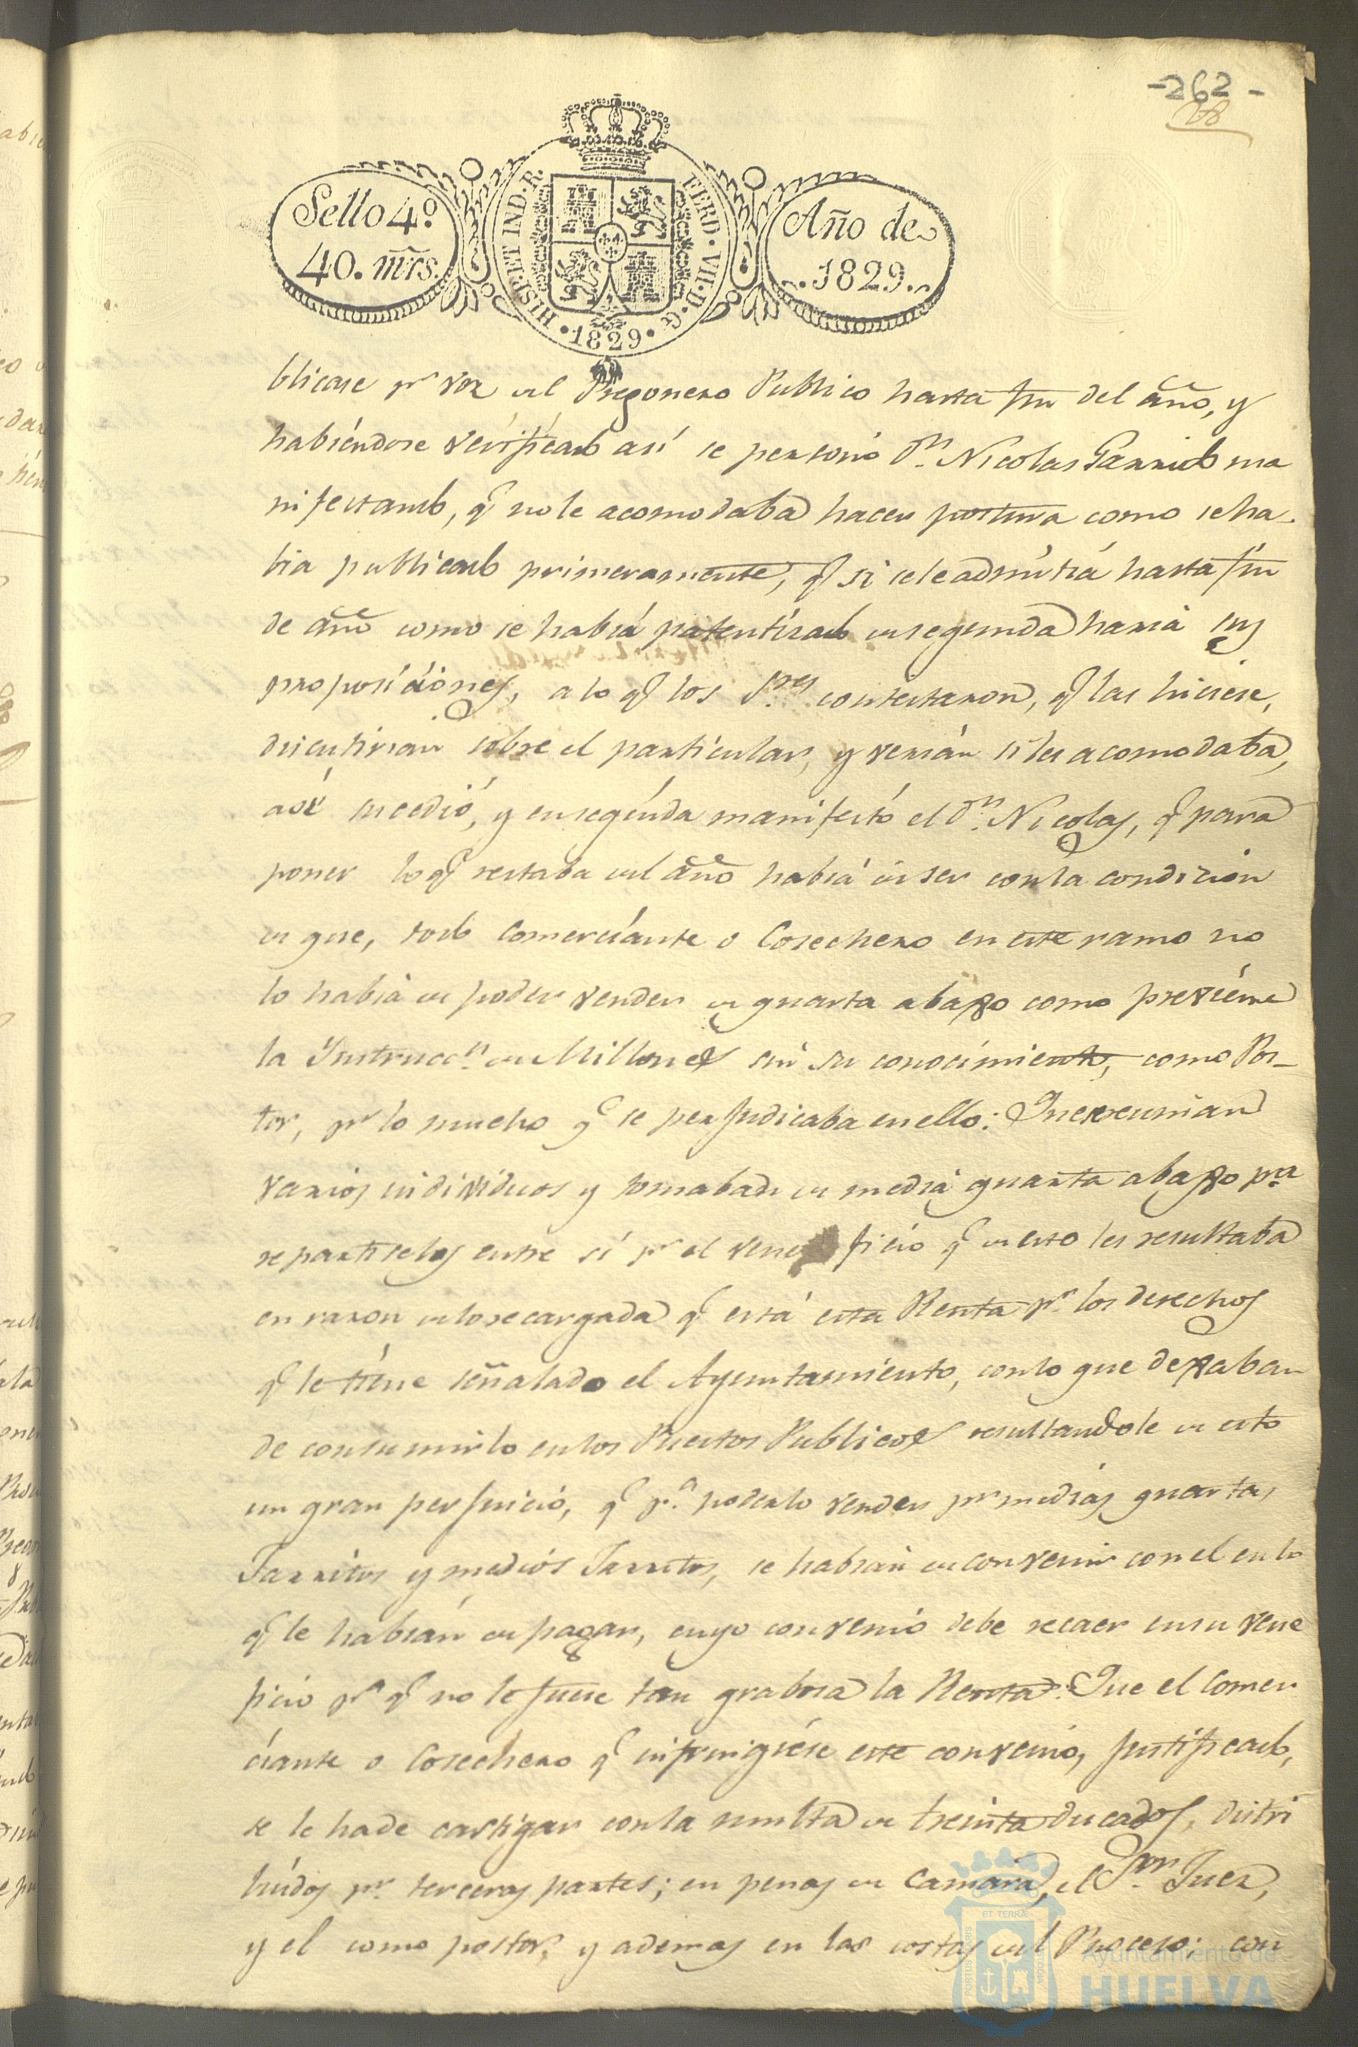 -262-
Sello 4º
40. mrs.
HISP. ET IND. R. FERD. VII. D. G.
1829
Año de
1829.
blicase pr voz del Pregonero Publico hasta fin del año, y
habiéndose verificado así se personó Dn. Nicolas Garrido ma
nifestando, q no le acomodaba hacer postura como se ha-
bia publicado primeramente, q si se le admitía hasta fin
de año como se había patentizado en segunda haria sus
proposiciones, a lo q los Sres contestaron, q las hiciese,
discutirian sobre el particular, y verían si les acomodaba,
así sucedió, y en seguida manifestó el Dn. Nicolas, q para
poner lo q restaba del año había de ser con la condicion
de que, todo Comerciante o Cosechero en este ramo no
lo había de poder vender de quarta abaxo como previene
la Instruccn. de Millones sin su conocimiento, como Pos-
tor, pr lo mucho q se perjudicaba en ello: Que se reunian
varios individuos y tomaban de media quarta abaxo pra
repartirselos entre sí pr el veneficio q de esto les resultaba
en razon de lo recargada q está esta Renta pr los derechos
q le tiene señalado el Ayuntamiento, con lo que dexaban
de consumirlo en los Puestos Publicos resultandole de esto
un gran perjuicio, q pa poderlo vender pr medias quartas,
Jarritos y medios Jarritos, se habian de convenir con el en lo
q le habían de pagar, cuyo convenio debe recaer en su vene
ficio pa q no le fuese tan grabosa la Renta: Que el Comer
ciante o Cosechero q infringiese este convenio, justificado,
se le ha de castigar con la multa de treinta ducados, distri
buidos pr terceras partes; en penas de Camara, el Sor. Juez,
y el como postor, y ademas en las costas del Proceso; con
Ayuntamiento de
HUELVA